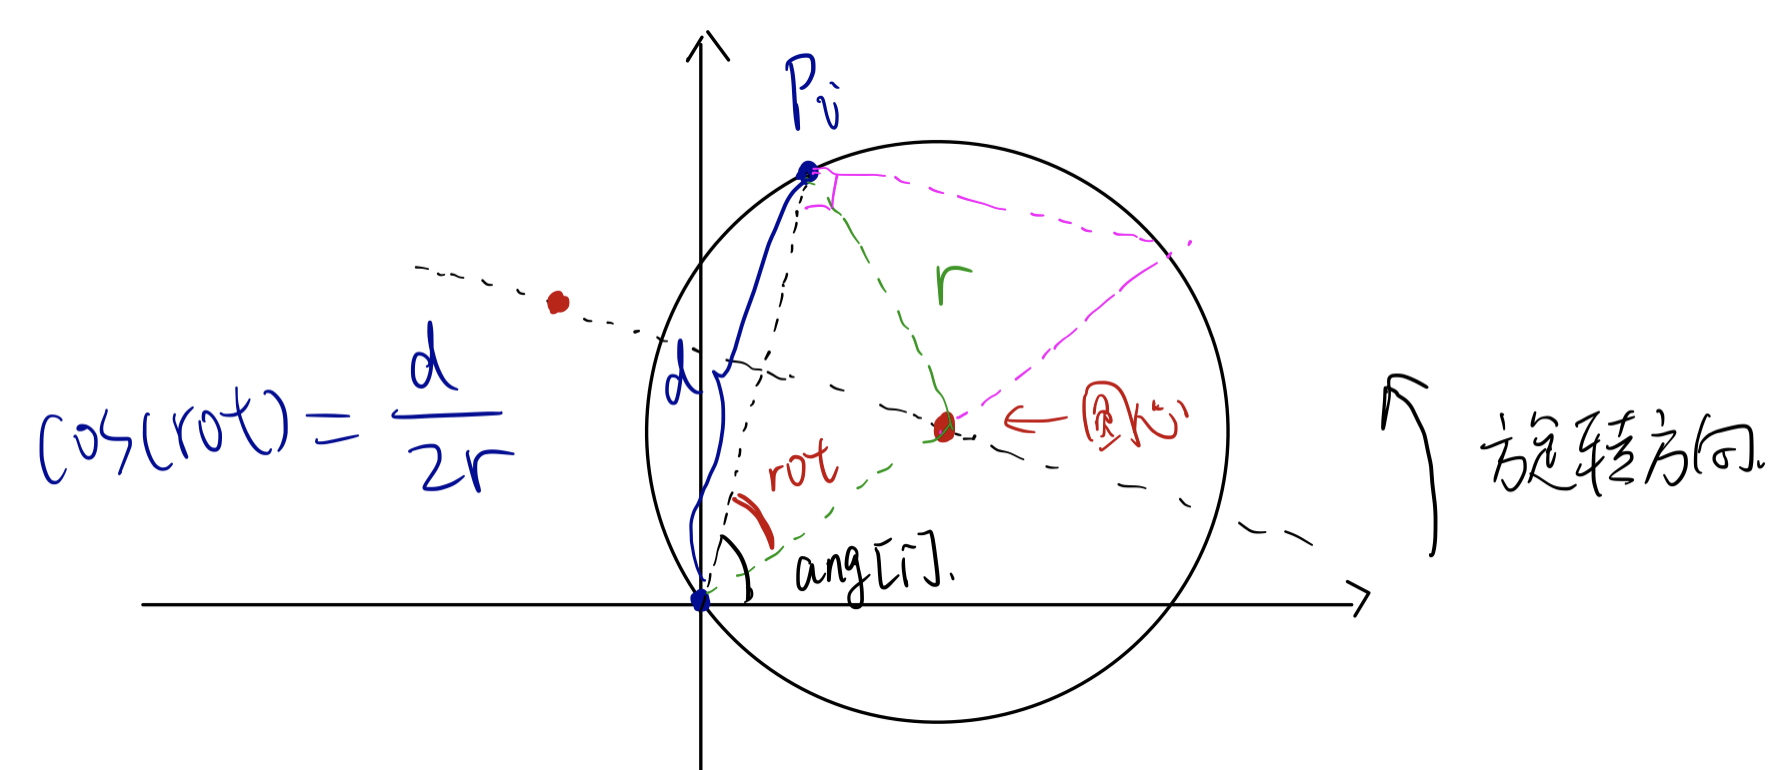 Pi
r
d
cos(rot) = d/2r
← 圆心
rot
ang[i].
方旋转方向.